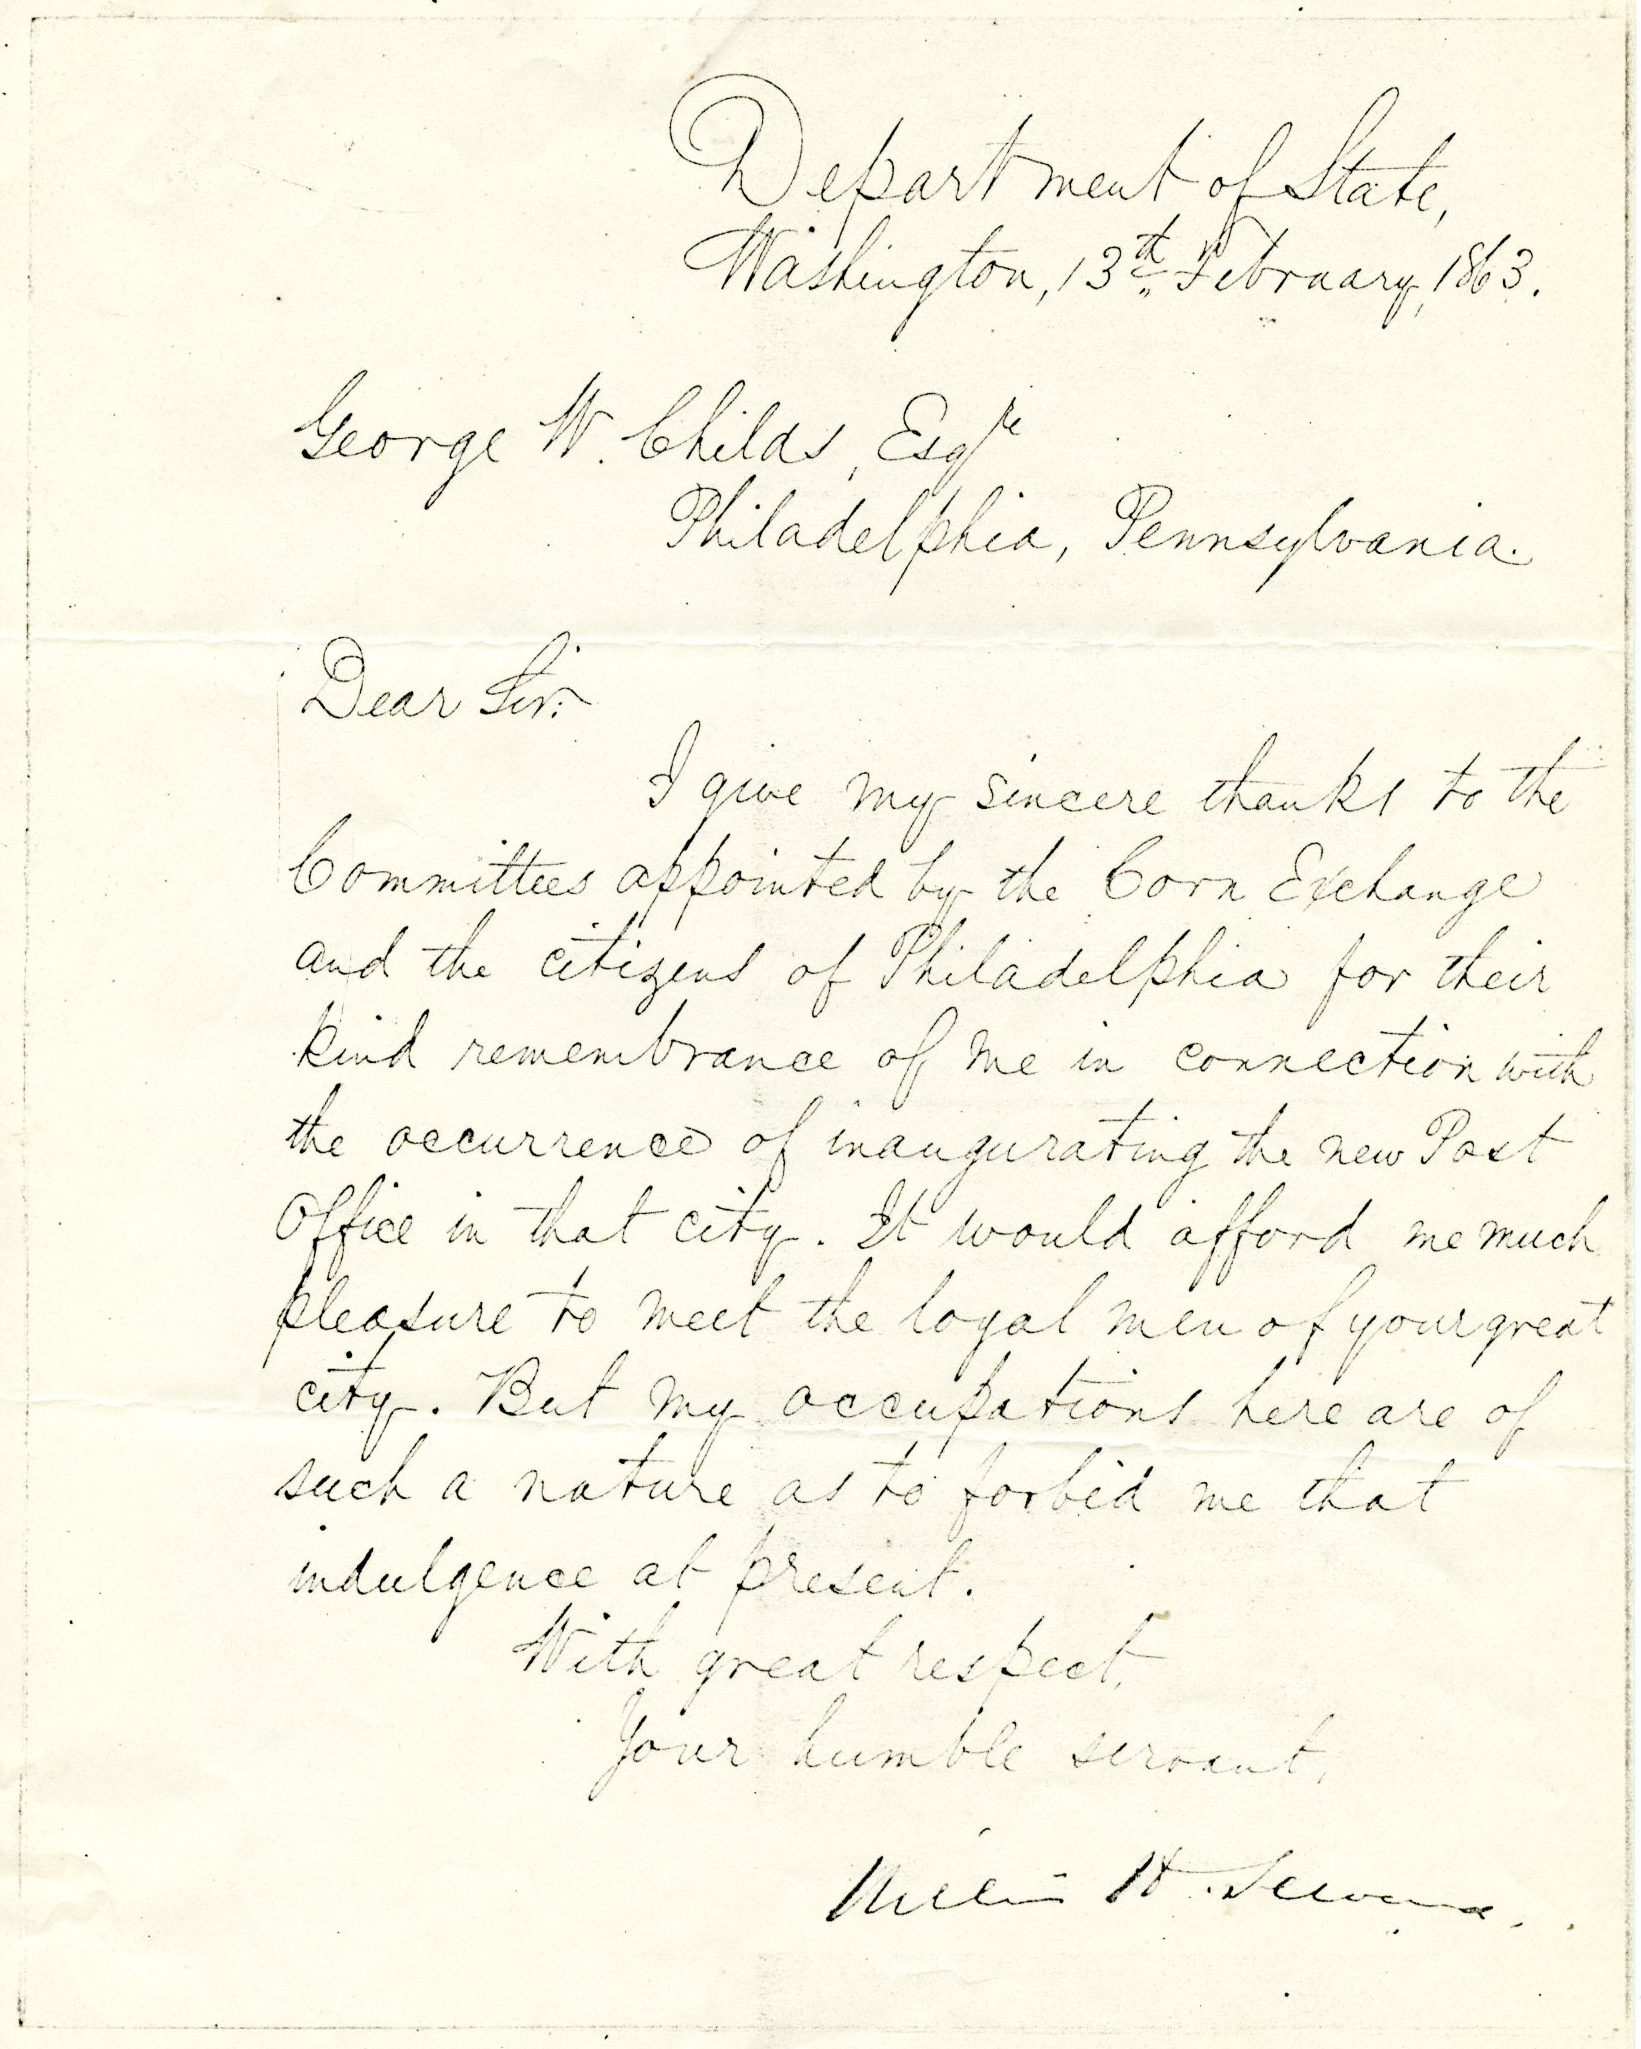 Department of State,
Washington, 13th February, 1863.
George W. Childs, Esqre
Philadelphia, Pennsylvania.
Dear Sir:
I give my sincere thanks to the
Committees appointed by the Corn Exchange
and the citizens of Philadelphia for their
kind remembrance of me in connection with
the occurrence of inaugurating the new Post
Office in that city. It would afford me much
pleasure to meet the loyal men of your great
city. But my occupations here are of
such a nature as to forbid me that
indulgence at present.
With great respect,
Your humble servant,
William H. Seward.